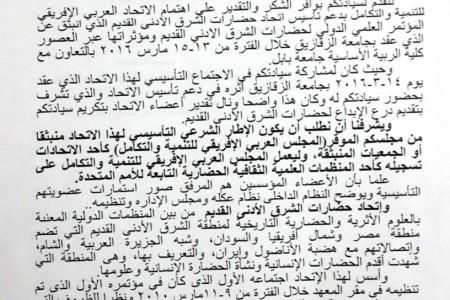 نتقدم لسيادتكم بوافر الشكر والتقدير على اهتمام الاتحاد العربي الإفريقي
للتنمية والتكامل بدعم تأسيس اتحاد حضارات الشرق الأدنى القديم الذي انبثق عن
المؤتمر العلمي الدولي لحضارات الشرق الأدنى القديم ومؤثراتها عبر العصور
الذي عقد بجامعة الزقازيق خلال الفترة من ١٣-١٥ مارس ٢٠١٦ بالتعاون مع
كلية التربية الأساسية جامعة بابل.
وحيث كان لمشاركة سيادتكم في الاجتماع التأسيسي لهذا الاتحاد الذي عقد
يوم ١٤-٣-٢٠١٦ بجامعة الزقازيق أثره في دعم تأسيس الاتحاد والذي تشرف
بحضور سيادتكم له وكان هذا واضحا ونال تقدير أعضاء الاتحاد بتكريم سيادتكم
بتقديم درع الإبداع لحضارات الشرق الأدنى القديم.
ويشرفنا أن نطلب أن يكون الإطار الشرعي التأسيسي لهذا الاتحاد منبثقا
من مجلسكم الموقر(المجلس العربي الإفريقي للتنمية والتكامل) كأحد الاتحادات
أو الجمعيات المنبثقة، وليعمل المجلس العربي الإفريقي للتنمية والتكامل على
تسجيله كأحد المنظمات العلمية الثقافية الحضارية التابعة للأمم المتحدة.
علما بأن الأعضاء المؤسسين هم المرفق صور استمارات عضويتهم
التأسيسية ويوضح النظام الداخلي نظام عمله ومجلس الإداره وتنظيمه..
وإتحاد حضارات الشرق الأدنى القديم من بين المنظمات الدولية المعنية
بالعلوم الأثرية والحضارية التاريخية لمنطقة الشرق الأدنى القديم التي تضم
منطقة مصر وشمال أفريقيا والسودان، وشبه الجزيرة العربية والشام،
وإتصالاتهم مع هضبة الأناضول وإيران، والتعريف بها، وهى المنطقة التي
شهدت أقدم الحضارات الإنسانية ونشأة الحضارة الإنسانية وعلومها.
وأسس لهذا الإتحاد اجتماعه الأول الذي كان في مؤتمره الأول الذي تم
تنظيمه في مقر المعهد خلال الفترة من ٩-١١مارس ٢٠١٠